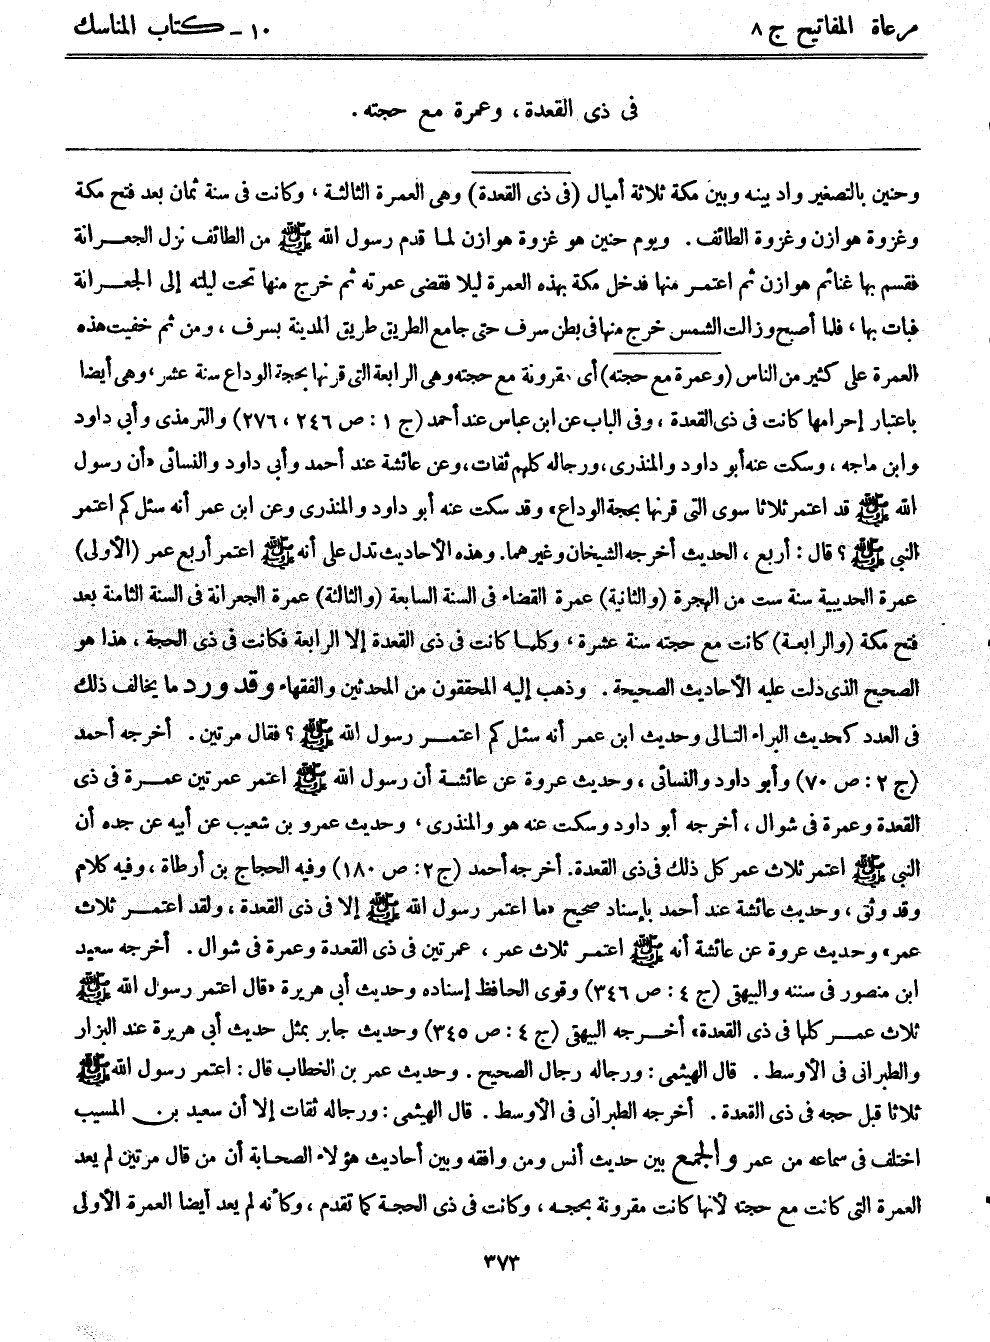 مرعاة المفاتيح ج ٨
١٠ - كتاب المناسك
فى ذى القعدة ، وعمرة مع حجته .
وحنين بالتصغير واد بينه وبين مكة ثلاثة أميال (فى ذى القعدة) وهى العمرة الثالثة ، وكانت فى سنة ثمان بعد فتح مكة
وغزوة هوازن وغزوة الطائف . ويوم حنين هو غزوة هوازن لما قدم رسول الله ﷺ من الطائف نزل الجعرانة
فقسم بها غنائم هوازن ثم اعتمر منها فدخل مكة بهذه العمرة ليلا فقضى عمرته ثم خرج منها تحت ليلته إلى الجعرانة
فبات بها ، فلما أصبح وزالت الشمس خرج منها فى بطن سرف حتى جامع الطريق طريق المدينة بسرف ، ومن ثم خفيت هذه
العمرة على كثير من الناس (وعمرة مع حجته) أى مقرونة مع حجته وهى الرابعة التى قرنها بحجة الوداع سنة عشر ، وهى أيضا
باعتبار إحرامها كانت فى ذى القعدة ، وفى الباب عن ابن عباس عند أحمد (ج ١ : ص ٢٤٦ ، ٢٧٦) والترمذى وأبي داود
وابن ماجه ، وسكت عنه أبو داود والمنذرى ، ورجاله كلهم ثقات ، وعن عائشة عند أحمد وأبي داود والنسائى «أن رسول
الله ﷺ قد اعتمر ثلاثا سوى التى قرنها بحجة الوداع» وقد سكت عنه أبو داود والمنذرى وعن ابن عمر أنه سئل كم اعتمر
النبى ﷺ ؟ قال : أربع ، الحديث أخرجه الشيخان وغيرهما. وهذه الأحاديث تدل على أنه ﷺ اعتمر أربع عمر (الأولى)
عمرة الحديبية سنة ست من الهجرة (والثانية) عمرة القضاء فى السنة السابعة (والثالثة) عمرة الجعرانة فى السنة الثامنة بعد
فتح مكة (والرابعة) كانت مع حجته سنة عشرة ، وكلها كانت فى ذى القعدة إلا الرابعة فكانت فى ذى الحجة ، هذا هو
الصحيح الذى دلت عليه الأحاديث الصحيحة . وذهب إليه المحققون من المحدثين والفقهاء وقد ورد ما يخالف ذلك
فى العدد كحديث البراء التالى وحديث ابن عمر أنه سئل كم اعتمر رسول الله ﷺ ؟ فقال مرتين . أخرجه أحمد
(ج ٢ : ص ٧٠) وأبو داود والنسائى ، وحديث عروة عن عائشة أن رسول الله ﷺ اعتمر عمرتين عمرة فى ذى
القعدة وعمرة فى شوال ، أخرجه أبو داود وسكت عنه هو والمنذرى ، وحديث عمرو بن شعيب عن أبيه عن جده أن
النبى ﷺ اعتمر ثلاث عمر كل ذلك فى ذى القعدة. أخرجه أحمد (ج ٢: ص ١٨٠) وفيه الحجاج بن أرطاة ، وفيه كلام
وقد وثق ، وحديث عائشة عند أحمد بإسناد صحيح «ما اعتمر رسول الله ﷺ إلا فى ذى القعدة ، ولقد اعتمر ثلاث
عمر» وحديث عروة عن عائشة أنه ﷺ اعتمر ثلاث عمر ، عمرتين فى ذى القعدة وعمرة فى شوال . أخرجه سعيد
ابن منصور فى سننه والبيهقى (ج ٤ : ص ٣٤٦) وقوى الحافظ إسناده وحديث أبي هريرة «قال اعتمر رسول الله ﷺ
ثلاث عمر كلها فى ذى القعدة» أخرجه البيهقى (ج ٤ : ص ٣٤٥) وحديث جابر بمثل حديث أبي هريرة عند البزار
والطبرانى فى الأوسط . قال الهيثمى : ورجاله رجال الصحيح . وحديث عمر بن الخطاب قال : اعتمر رسول الله ﷺ
ثلاثا قبل حجه فى ذى القعدة . أخرجه الطبرانى فى الأوسط . قال الهيثمى : ورجاله ثقات إلا أن سعيد بن المسيب
اختلف فى سماعه من عمر والجمع بين حديث أنس ومن وافقه وبين أحاديث هؤلاء الصحابة أن من قال مرتين لم يعد
العمرة التى كانت مع حجته لأنها كانت مقرونة بحجه ، وكانت فى ذى الحجة كما تقدم ، وكأنه لم يعد أيضا العمرة الأولى
٣٧٣